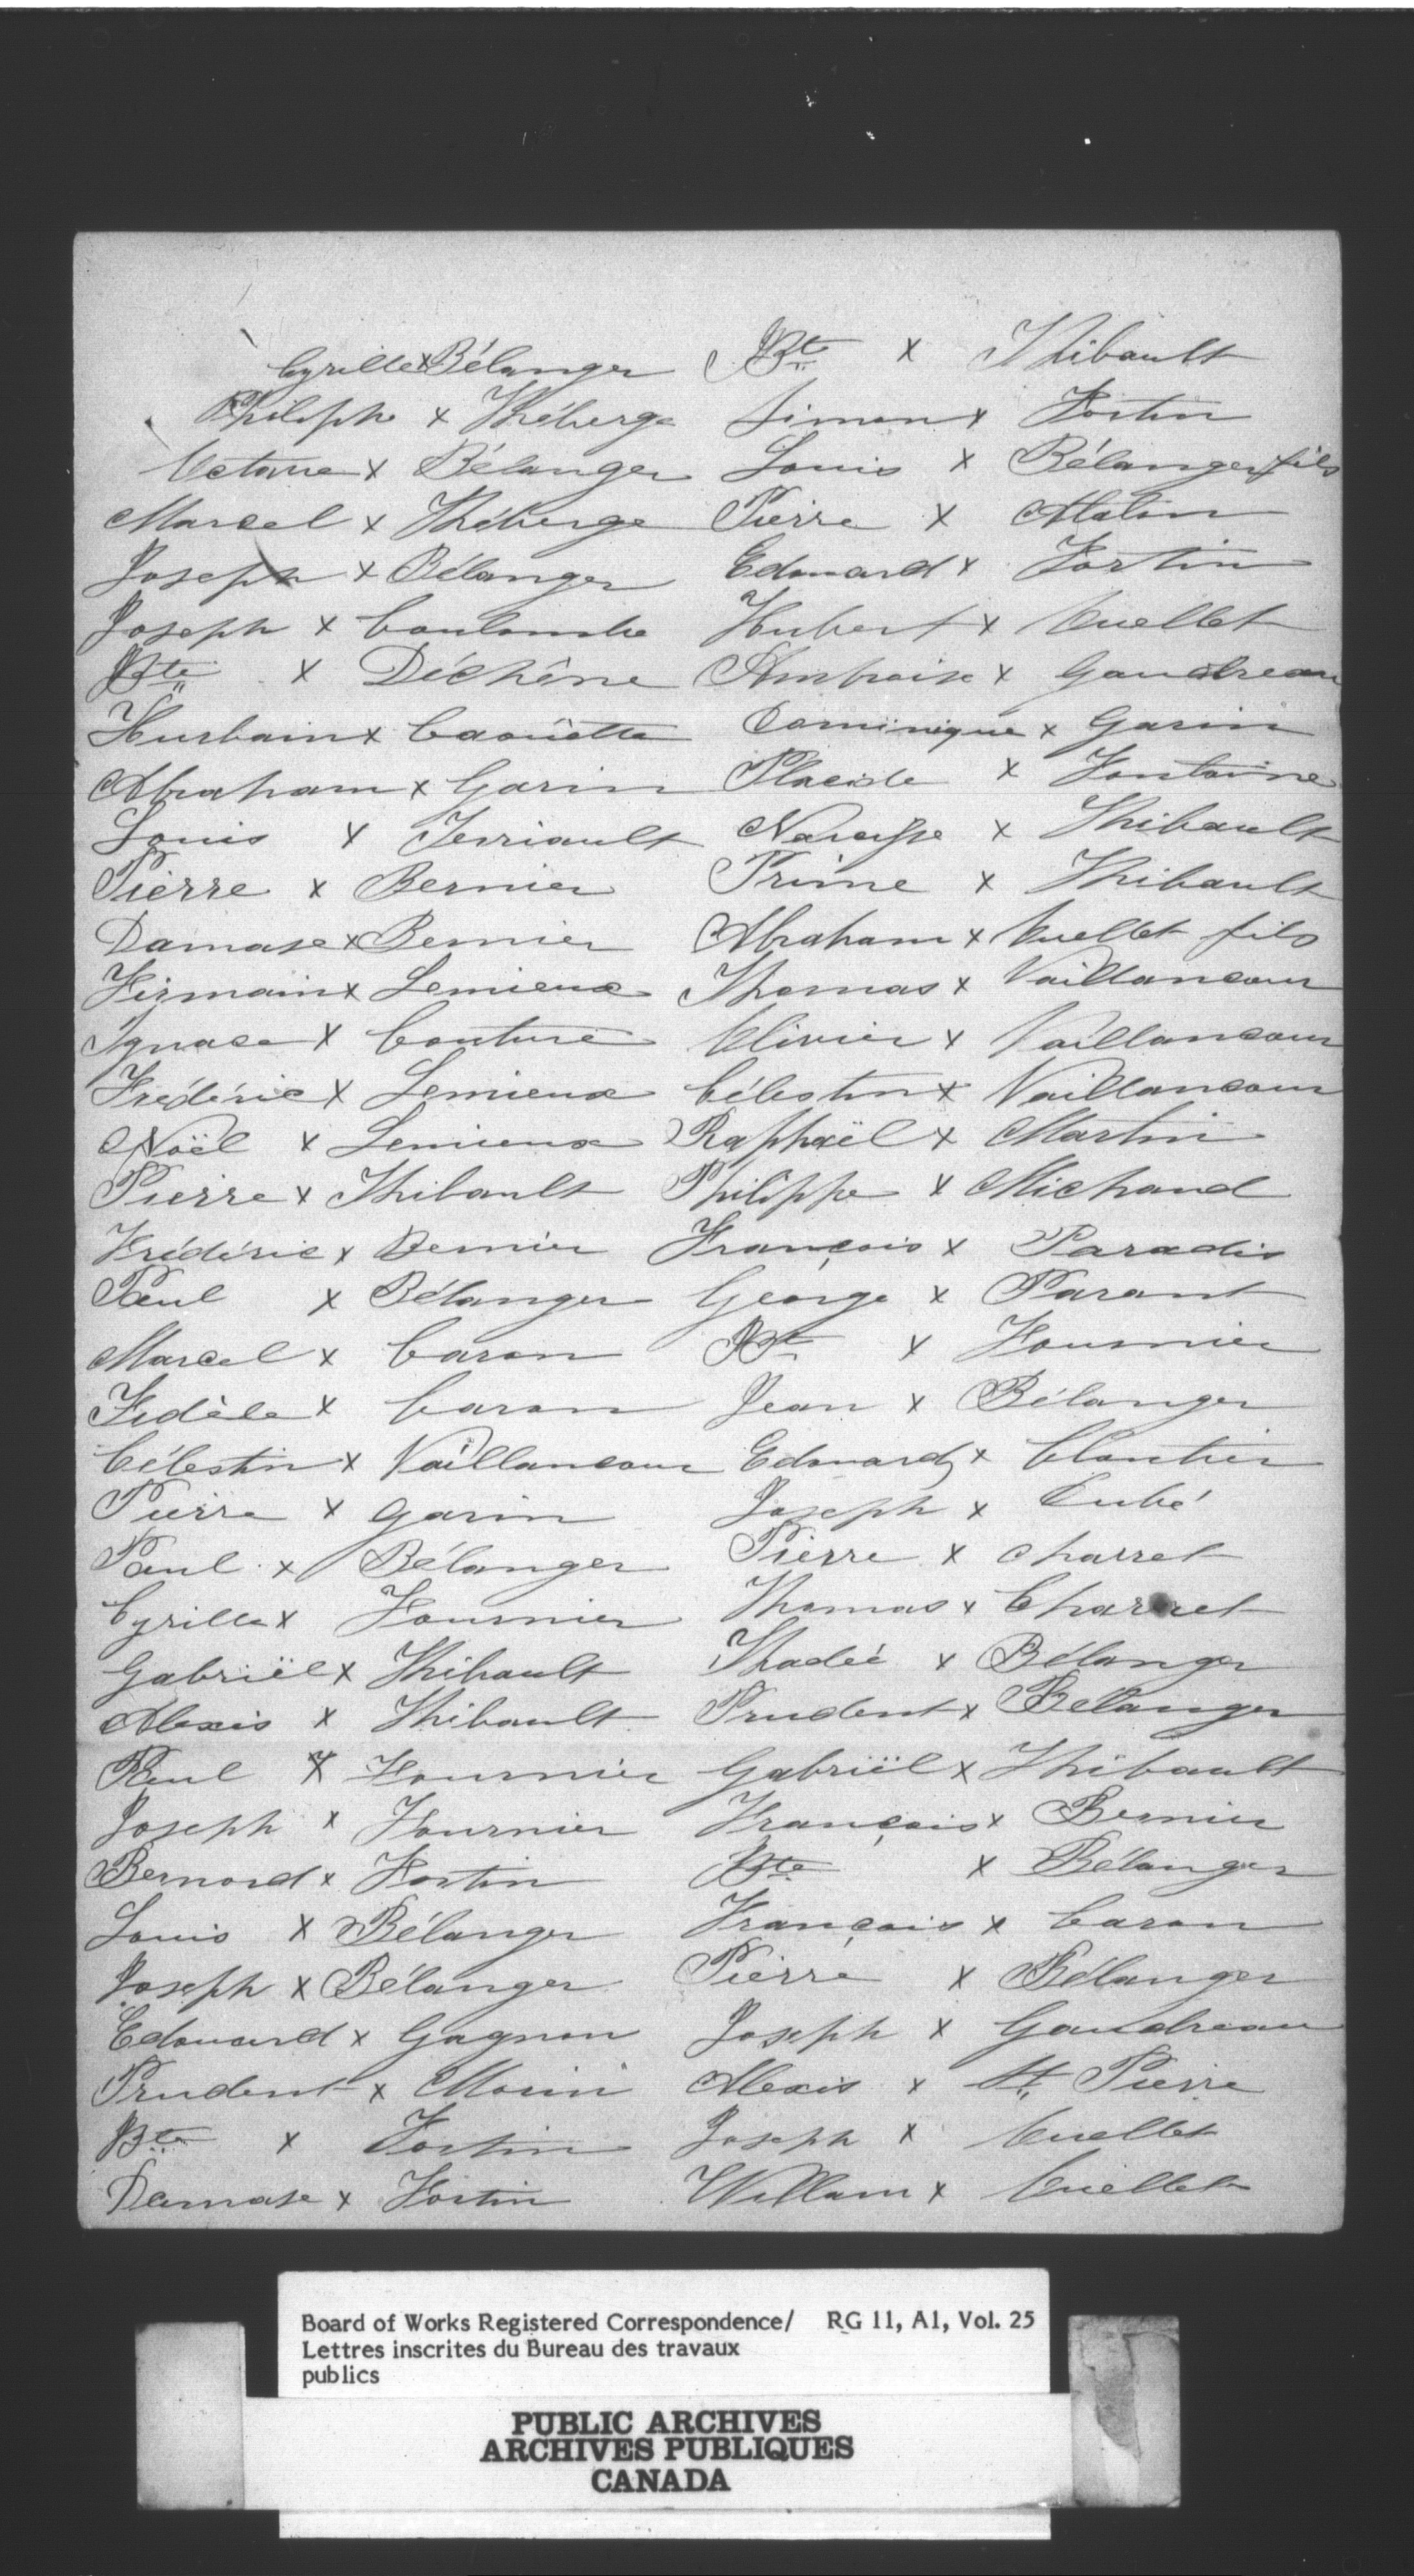 Cyrille x Bélanger Bte x Thibault
Philiphe x Théberge Simon x Fortin
Octave x Bélanger Louis x Bélanger fils
Marcel x Théberge Pierre x Malin
Joseph x Bélanger Edouard x Fortin
Joseph x Coulombe Hubert x Ouellet
Bte x Déchêne Ambroise x Gaudreau
Hurbain x Caouëtte Dominique x Garin
Abraham x Garin Placide x Fontaine
Louis x Terriault Narcisse x Thibault
Pierre x Bernier Prime x Thibault
Damase x Bernier Abraham x Ouellet fils
Firmain x Lemieux Thomas x Vaillancour
Ignace x Couture Olivier x Vaillancour
Frédéric x Lemieux Célestin x Vaillancour
Noël x Lemieux Raphaël x Martin
Pierre x Thibault Philippe x Michaud
Frédéric x Bernier François x Paradis
Paul x Bélanger George x Parant
Marcel x Caron Bte x Fournier
Fidèle x Caron Jean x Bélanger
Célestin x Vaillancour Edouard x Cloutier
Pierre x Garin Joseph x Dubé
Paul x Bélanger Pierre x Charret
Cyrille x Fournier Thomas x Charret
Gabriël x Thibault Thadée x Bélanger
Alexis x Thibault Prudent x Bélanger
Paul x Fournier Gabriël x Thibault
Joseph x Fournier François x Bernier
Bernard x Fortin Bte x Bélanger
Louis x Bélanger François x Caron
Joseph x Bélanger Pierre x Bélanger
Edouard x Gagnon Joseph x Gaudreau
Prudent x Morin Alexis x St Pierre
Bte x Fortin Joseph x Ouellet
Damase x Fortin William x Ouellet
Board of Works Registered Correspondence/ RG 11, A1, Vol. 25
Lettres inscrites du Bureau des travaux
publics
PUBLIC ARCHIVES
ARCHIVES PUBLIQUES
CANADA